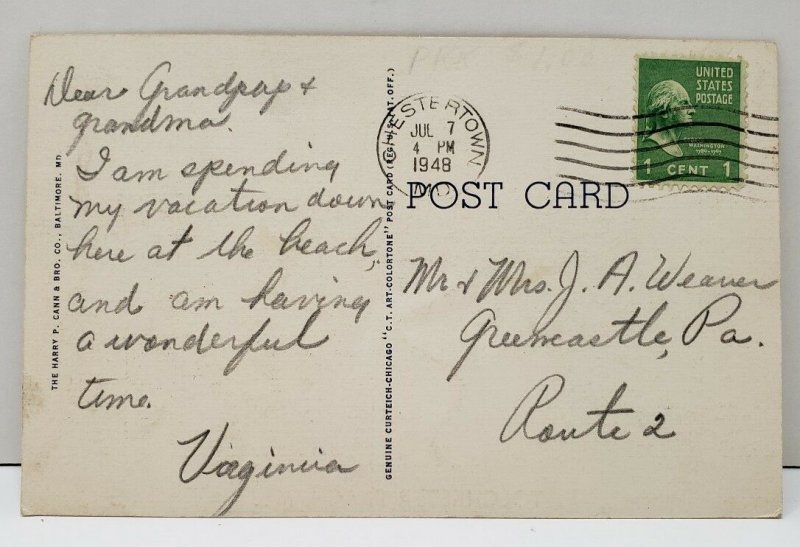 Dear Grandpap &
grandma.
I am spending
my vacation down
here at the beach,
and am having
a wonderful
time.
Virginia
THE HARRY P. CANN & BRO. CO., BALTIMORE, MD
GENUINE CURTEICH-CHICAGO "C.T. ART-COLORTONE" POST CARD (REG. U.S. PAT. OFF.)
CHESTERTOWN
JUL 7
4 PM
1948
MD.
UNITED
STATES
POSTAGE
WASHINGTON
1789-1797
1 CENT 1
POST CARD
Mr & Mrs. J. A. Weaver
Greencastle, Pa.
Route 2